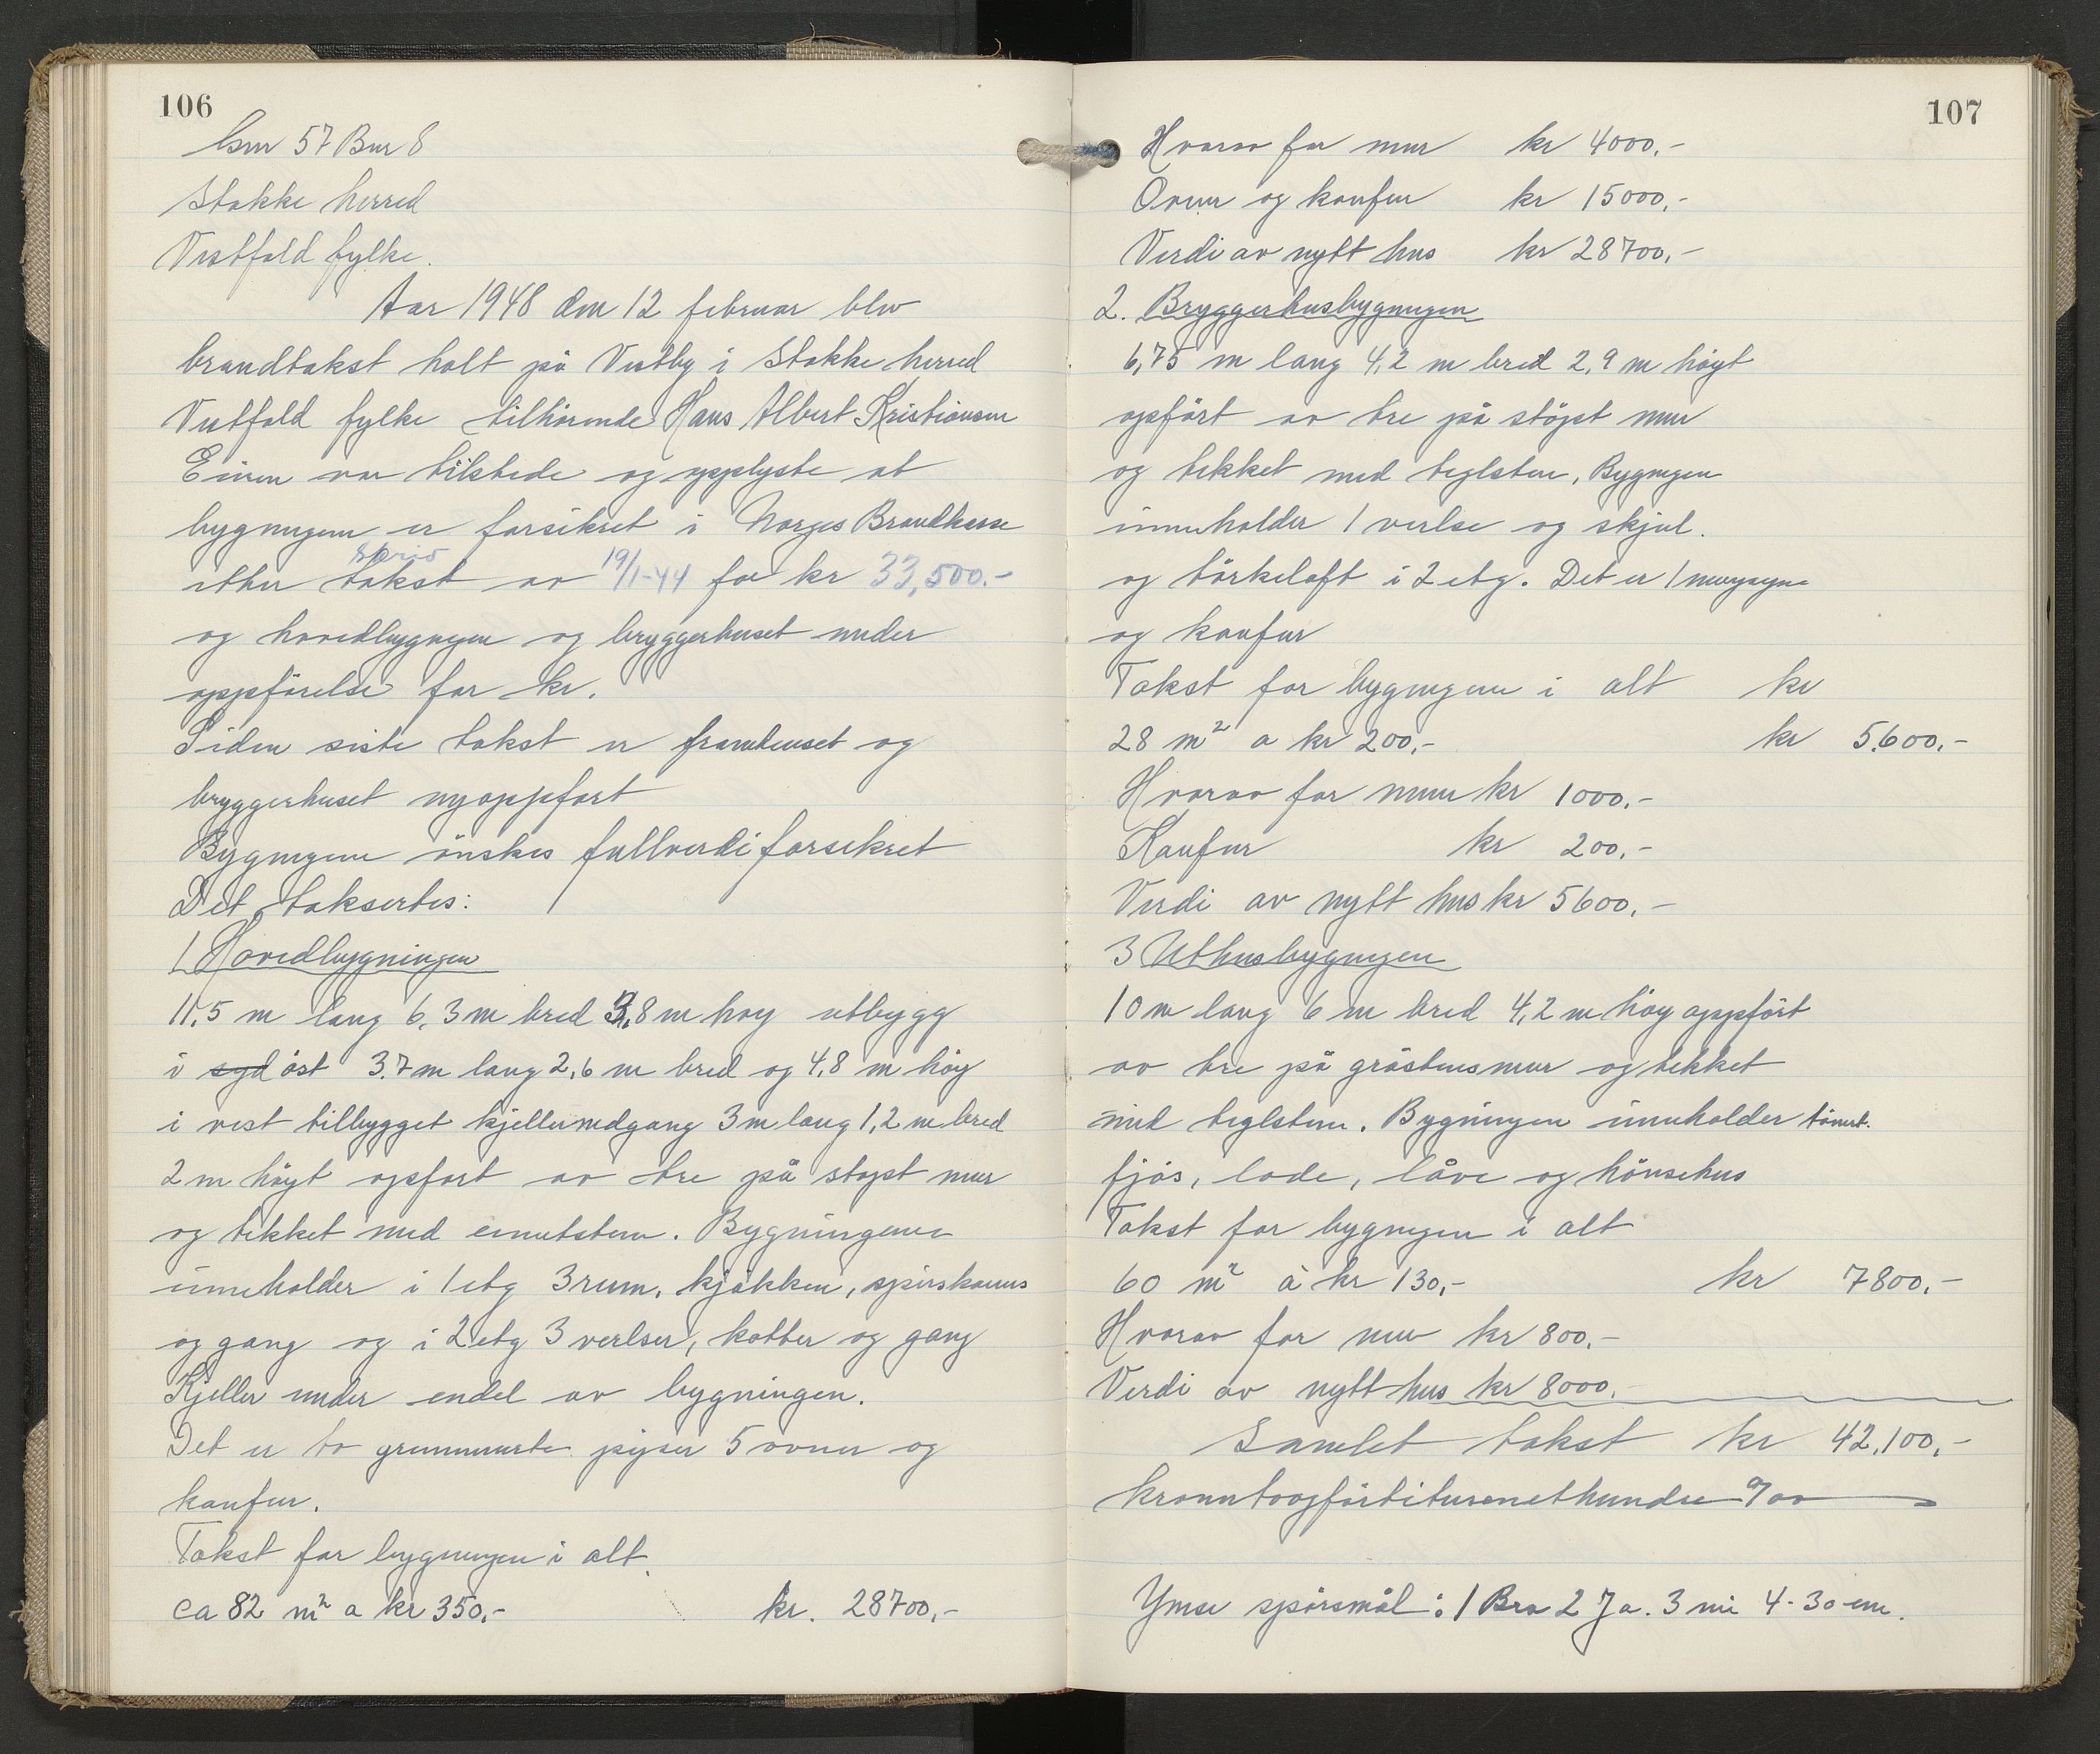 106
Gnr 57 Bnr 8
Stokke herred
Vestfold fylke.
Aar 1948 den 12 februar blev
brandtakst holt på Vestby i Stokke herred
Vestfold fylke tilhörende Hans Albert Kristiansen
Eieren var tilstede og opplyste at
bygningen er forsikret i Norges Brandkasse
skriv
etter takst av 19/1-44 for kr 33,500.-
og hovedbygngen og bryggerhuset under
oppförelse for kr.
Siden siste takst er framhuset og
bryggerhuset nyoppfort
Bygngene önskes fullverdiforsikret
Det taksertes:
1 Hovedbygningen
11,5 m lang 6,3 m bred 3,8 m hoy utbygg
i syd öst 3.7 m lang 2,6 m bred og 4,8 m höy
i vest tilbygget kjellernedgang 3 m lang 1,2 m bred
2 m höyt opfort av tre på stopt mur
og tekket med ementsten. Bygningene
inneholder i 1 etg 3 rum, kjökken, spiskams
og gang og i 2 etg 3 verlser, kotter og gang
Kjeller under endel av bygningen.
Det er to grunnmurte piper 5 ovner og
komfur.
Takst for bygningen i alt.
ca 82 m² a kr 350,- kr. 28700,-
107
Hvorav for mur kr 4000.-
Ovner og komfur kr 15000,-
Verdi av nytt hus kr 28700,-
2. Bryggerhusbygningen
6,75 m lang 4,2 m bred 2,9 m höyt
opfört av tre på stöpt mur
og tekket med teglsten, Bygngen
inneholder 1 verlse og skjul.
og törkeloft i 2 etg. Det er 1
og komfur
Takst for bygningen i alt kr
28 m² a kr 200,- kr 5.600,-
Hvorav for murer kr 1000.-
Komfur kr 200.-
Verdi av nytt hus kr 5600.-
3 Uthusbygningen
10 m lang 6 m bred 4,2 m höy oppfört
av tre på gråstensmur og tekket
med teglsten. Bygningen inneholder tömret.
fjös, lode, låve og hönsehus
Takst for bygngen i alt
60 m² à kr 130,- kr 7800.-
Hvorav for mur kr 800.-
Verdi av nytt hus kr 8000.-
Samlet takst kr 42.100,-
kronertoogförtitusenethundre %oo
Ymse spörsmål: 1 Bra 2 Ja. 3 nei 4 - 30 em.